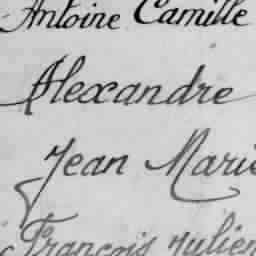 Antoine Camille
Alexandre
Jean Marie
François Julien